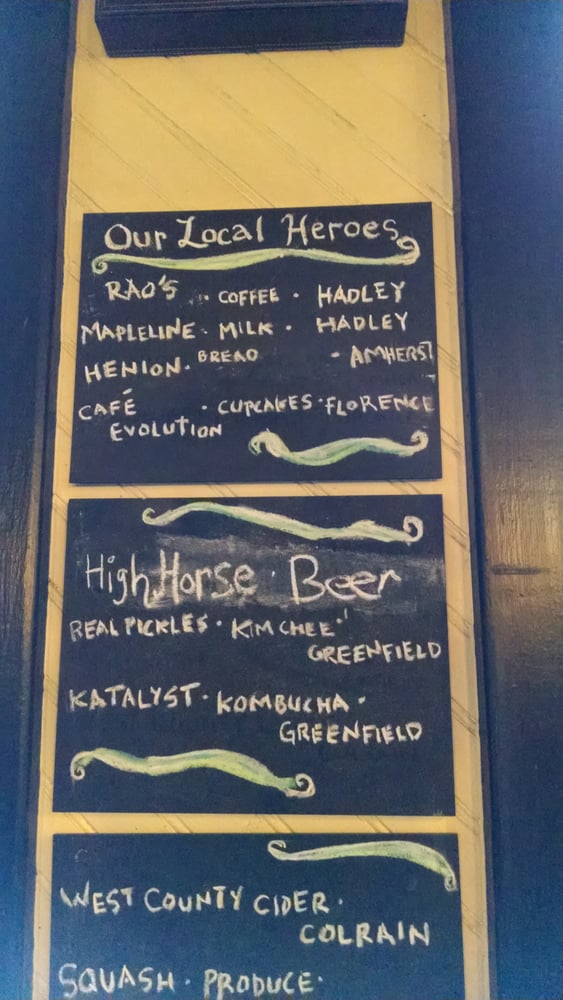 Our Local Heroes
RAO'S · COFFEE · HADLEY
MAPLELINE · MILK · HADLEY
HENION · BREAD · AMHERST
CAFÉ · CUPCAKES · FLORENCE
EVOLUTION
High Horse · Beer
REAL PICKLES · KIM CHEE ·
GREENFIELD
KATALYST · KOMBUCHA ·
GREENFIELD
WEST COUNTY CIDER ·
COLRAIN
SQUASH · PRODUCE ·